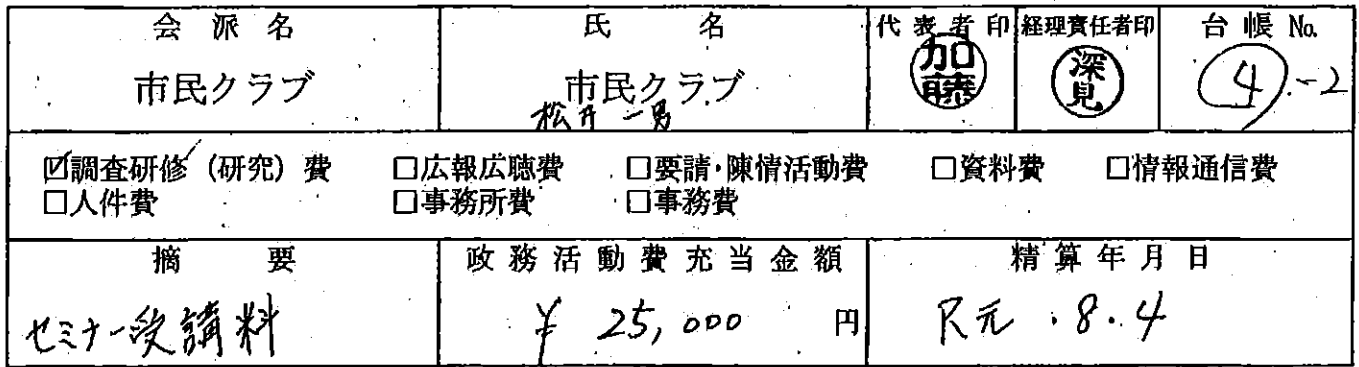 会派名 氏名 代表者印 経理責任者印 台帳No.
市民クラブ 市民クラブ 加藤 深見 ④-2
松井一男
☑調査研修(研究)費 □広報広聴費 □要請・陳情活動費 □資料費 □情報通信費
□人件費 □事務所費 □事務費
摘要 政務活動費充当金額 精算年月日
セミナー受講料 ¥25,000円 R元.8.4